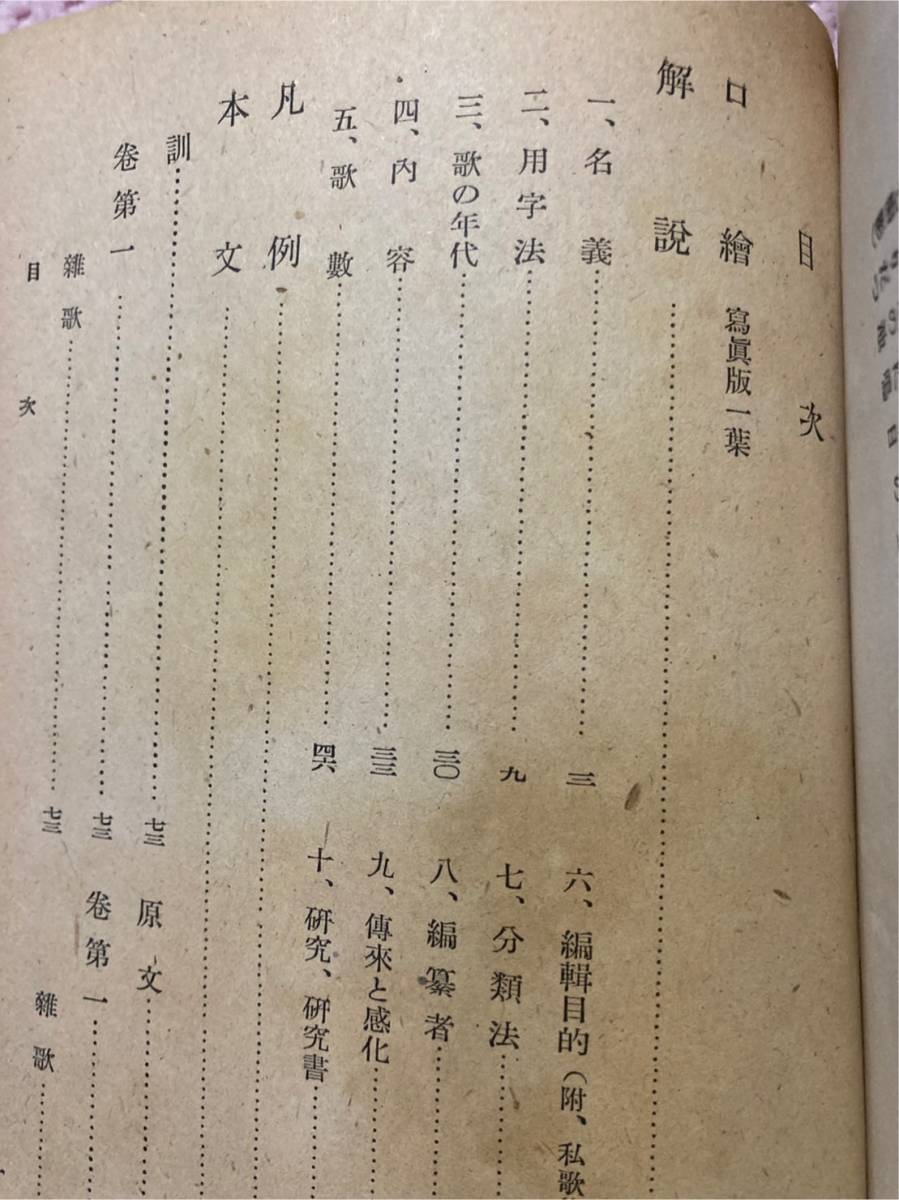 目次
口繪 寫眞版一葉
解說
一、名義 三
二、用字法 九
三、歌の年代 三〇
四、內容 三三
五、歌數 四六
六、編輯目的（附、私歌
七、分類法
八、編纂者
九、傳來と感化
十、硏究、硏究書
凡例
本文
訓 七三
卷第一 七三
雜歌 七三
原文
卷第一
雜歌
目次